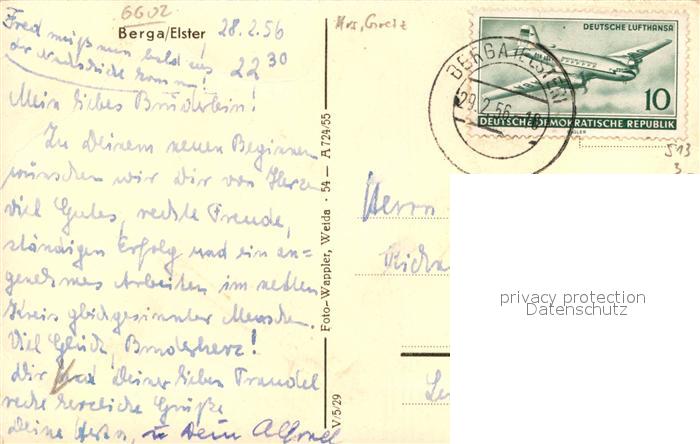 6602
Fred muß nun bald ins
Berga/Elster 28.2.56
22 30
Mein liebes Brüderlein!
Zu Deinem neuen Beginnen
wünschen wir Dir von Herzen
viel Gutes, rechte Freude,
ständigen Erfolg und ein an=
genehmes Arbeiten im netten
Kreis gleichgesinnter Menschen.
Viel Glück, Bruderherz!
Dir und Deiner lieben Traudel
recht herzliche Grüße
Deine u. Dein
Krs. Greiz
V/5/29 Foto-Wappler, Weida · 54 — A 724/55
DEUTSCHE LUFTHANSA
10
DEUTSCHE DEMOKRATISCHE REPUBLIK
BERGA (ELSTER)
29.2.56
513
Herrn
privacy protection
Datenschutz